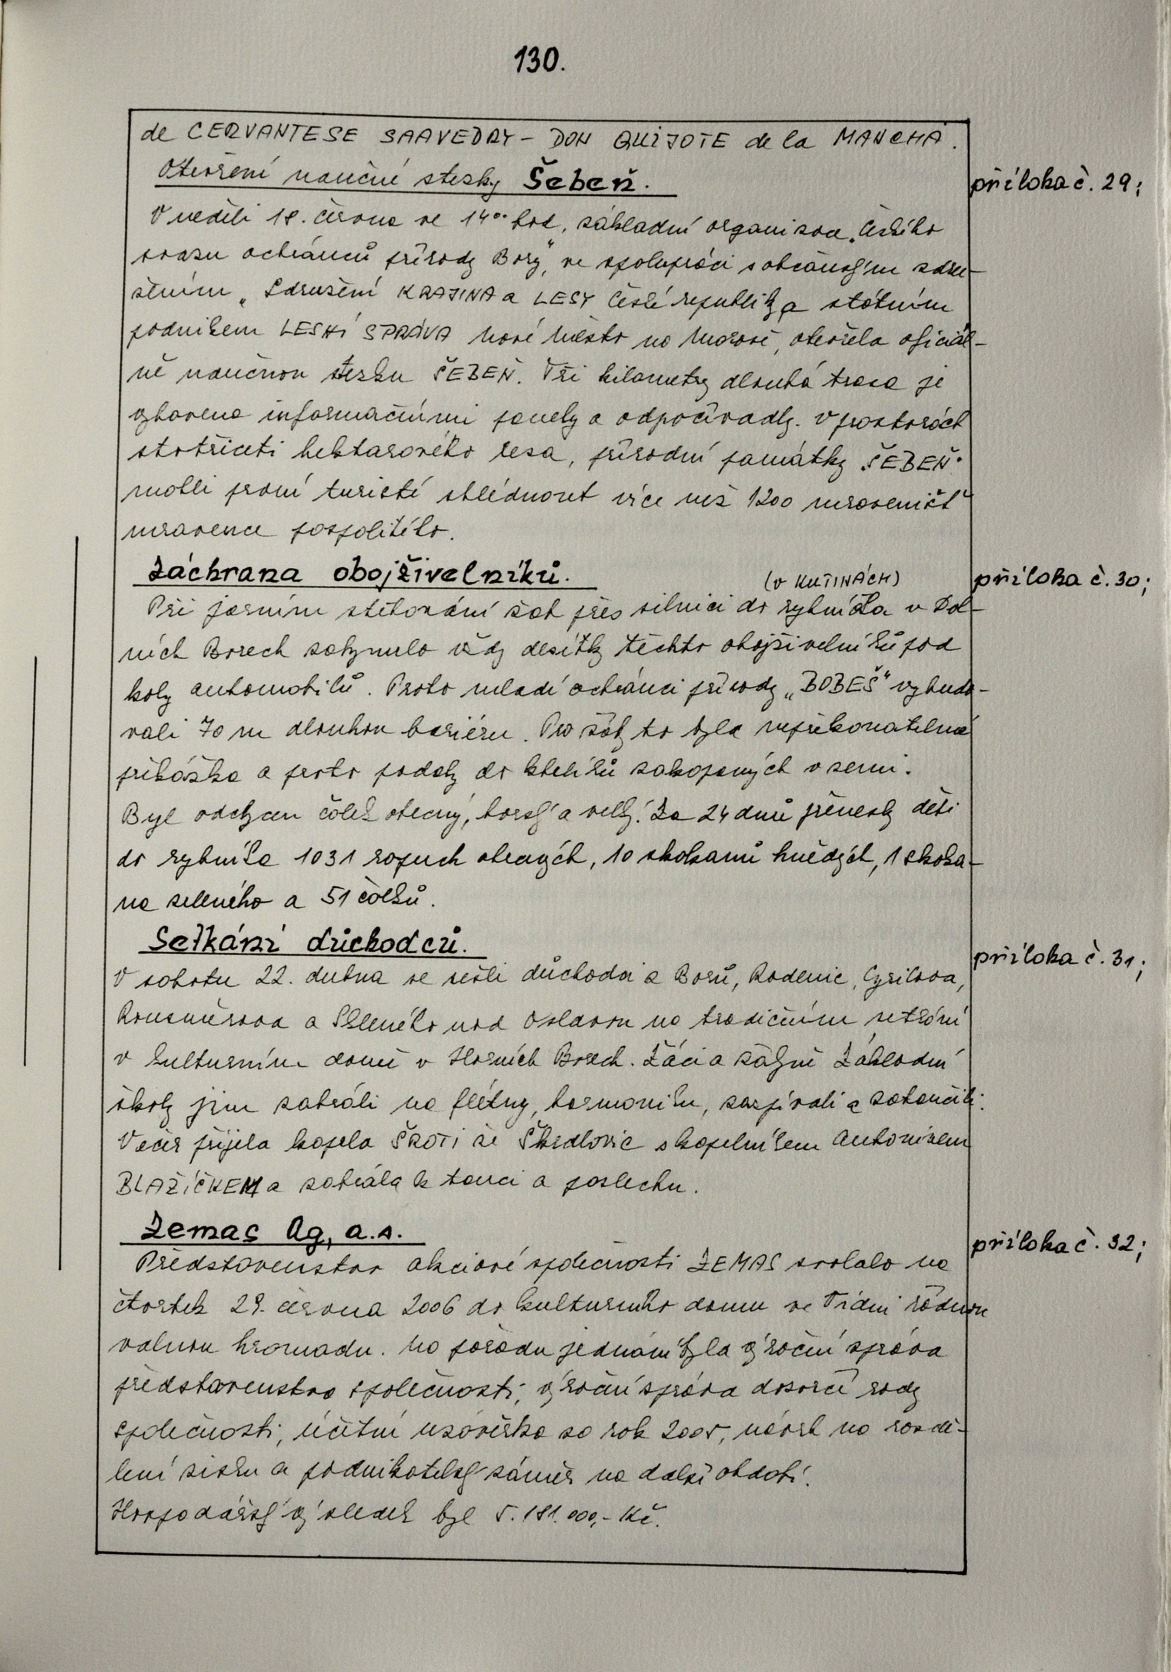 130.
de CERVANTESE SAAVEDRY – DON QUIJOTE de la MANCHA.
Otevření naučné stezky Šebeň.
příloha č. 29;
V neděli 18. června ve 14°° hod. základní organizace „Českého
svazu ochránců přírody Bory", ve spolupráci s občanským sdru-
žením „Sdružení KRAJINA a LESY České republiky a státním
podnikem LESNÍ SPRÁVA Nové Město na Moravě, otevřela oficiál-
ně naučnou stezku ŠEBEŇ. Tři kilometry dlouhá trasa je
vybavena informačními panely a odpočívadly. V prostorách
stotřiceti hektarového lesa, přírodní památky ŠEBEŇ
mohli první turisté shlédnout více než 1200 mravenišť
mravence pospolitého.
Záchrana obojživelníků.
příloha č. 30;
(v KUTINÁCH)
Při jarním stěhování žab přes silnici do rybníčka v Dol-
ních Borech zahynulo vždy desítky těchto obojživelníků pod
koly automobilů. Proto mladí ochránci přírody „BOBEŠ" vybudo-
vali 70 m dlouhou bariéru. Pro žáby to byla nepřekonatelná
překážka a proto padaly do kbelíků zakopaných v zemi.
Byl odchycen čolek obecný, horský a velký. Za 24 dnů přenesly děti
do rybníka 1031 ropuch obecných, 10 skokanů hnědých, 1 skoka-
na zeleného a 51 čolků.
Setkání důchodců.
příloha č. 31;
V sobotu 22. dubna se sešli důchodci z Borů, Rodenic, Cyrilova,
Rousměrova a Sklenného nad Oslavou na tradičním setkání
v kulturním domě v Horních Borech. Žáci a žákyně Základní
školy jim zahráli na flétny, harmoniku, zazpívali a zatančili.
Večer přijela kapela ŠROTI ze Škrdlovic s kapelníkem Antonínem
BLAŽÍČKEM a zahrála k tanci a poslechu.
Zemas Ag, a.s.
příloha č. 32;
Představenstvo akciové společnosti ZEMAS svolalo na
čtvrtek 29. června 2006 do kulturního domu ve Vídni řádnou
valnou hromadu. Na pořadu jednání byla výroční zpráva
představenstva společnosti, výroční zpráva dozorčí rady
společnosti, účetní uzávěrka za rok 2005, návrh na rozdě-
lení zisku a podnikatelský záměr na další období.
Hospodářský výsledek byl 5.181.000,- Kč.